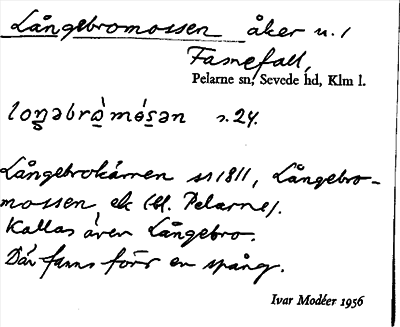 Långebromossen åker u. 1
Famefall,
Pelarne sn, Sevede hd, Klm l.
loŋ̲əbrò̲mós̲ən s. 24.
Långebrokärren sr 1811, Långebro-
mossen ek (bl. Pelarne).
Kallas även Långebro.
Där fanns förr en spång.
Ivar Modéer 1956